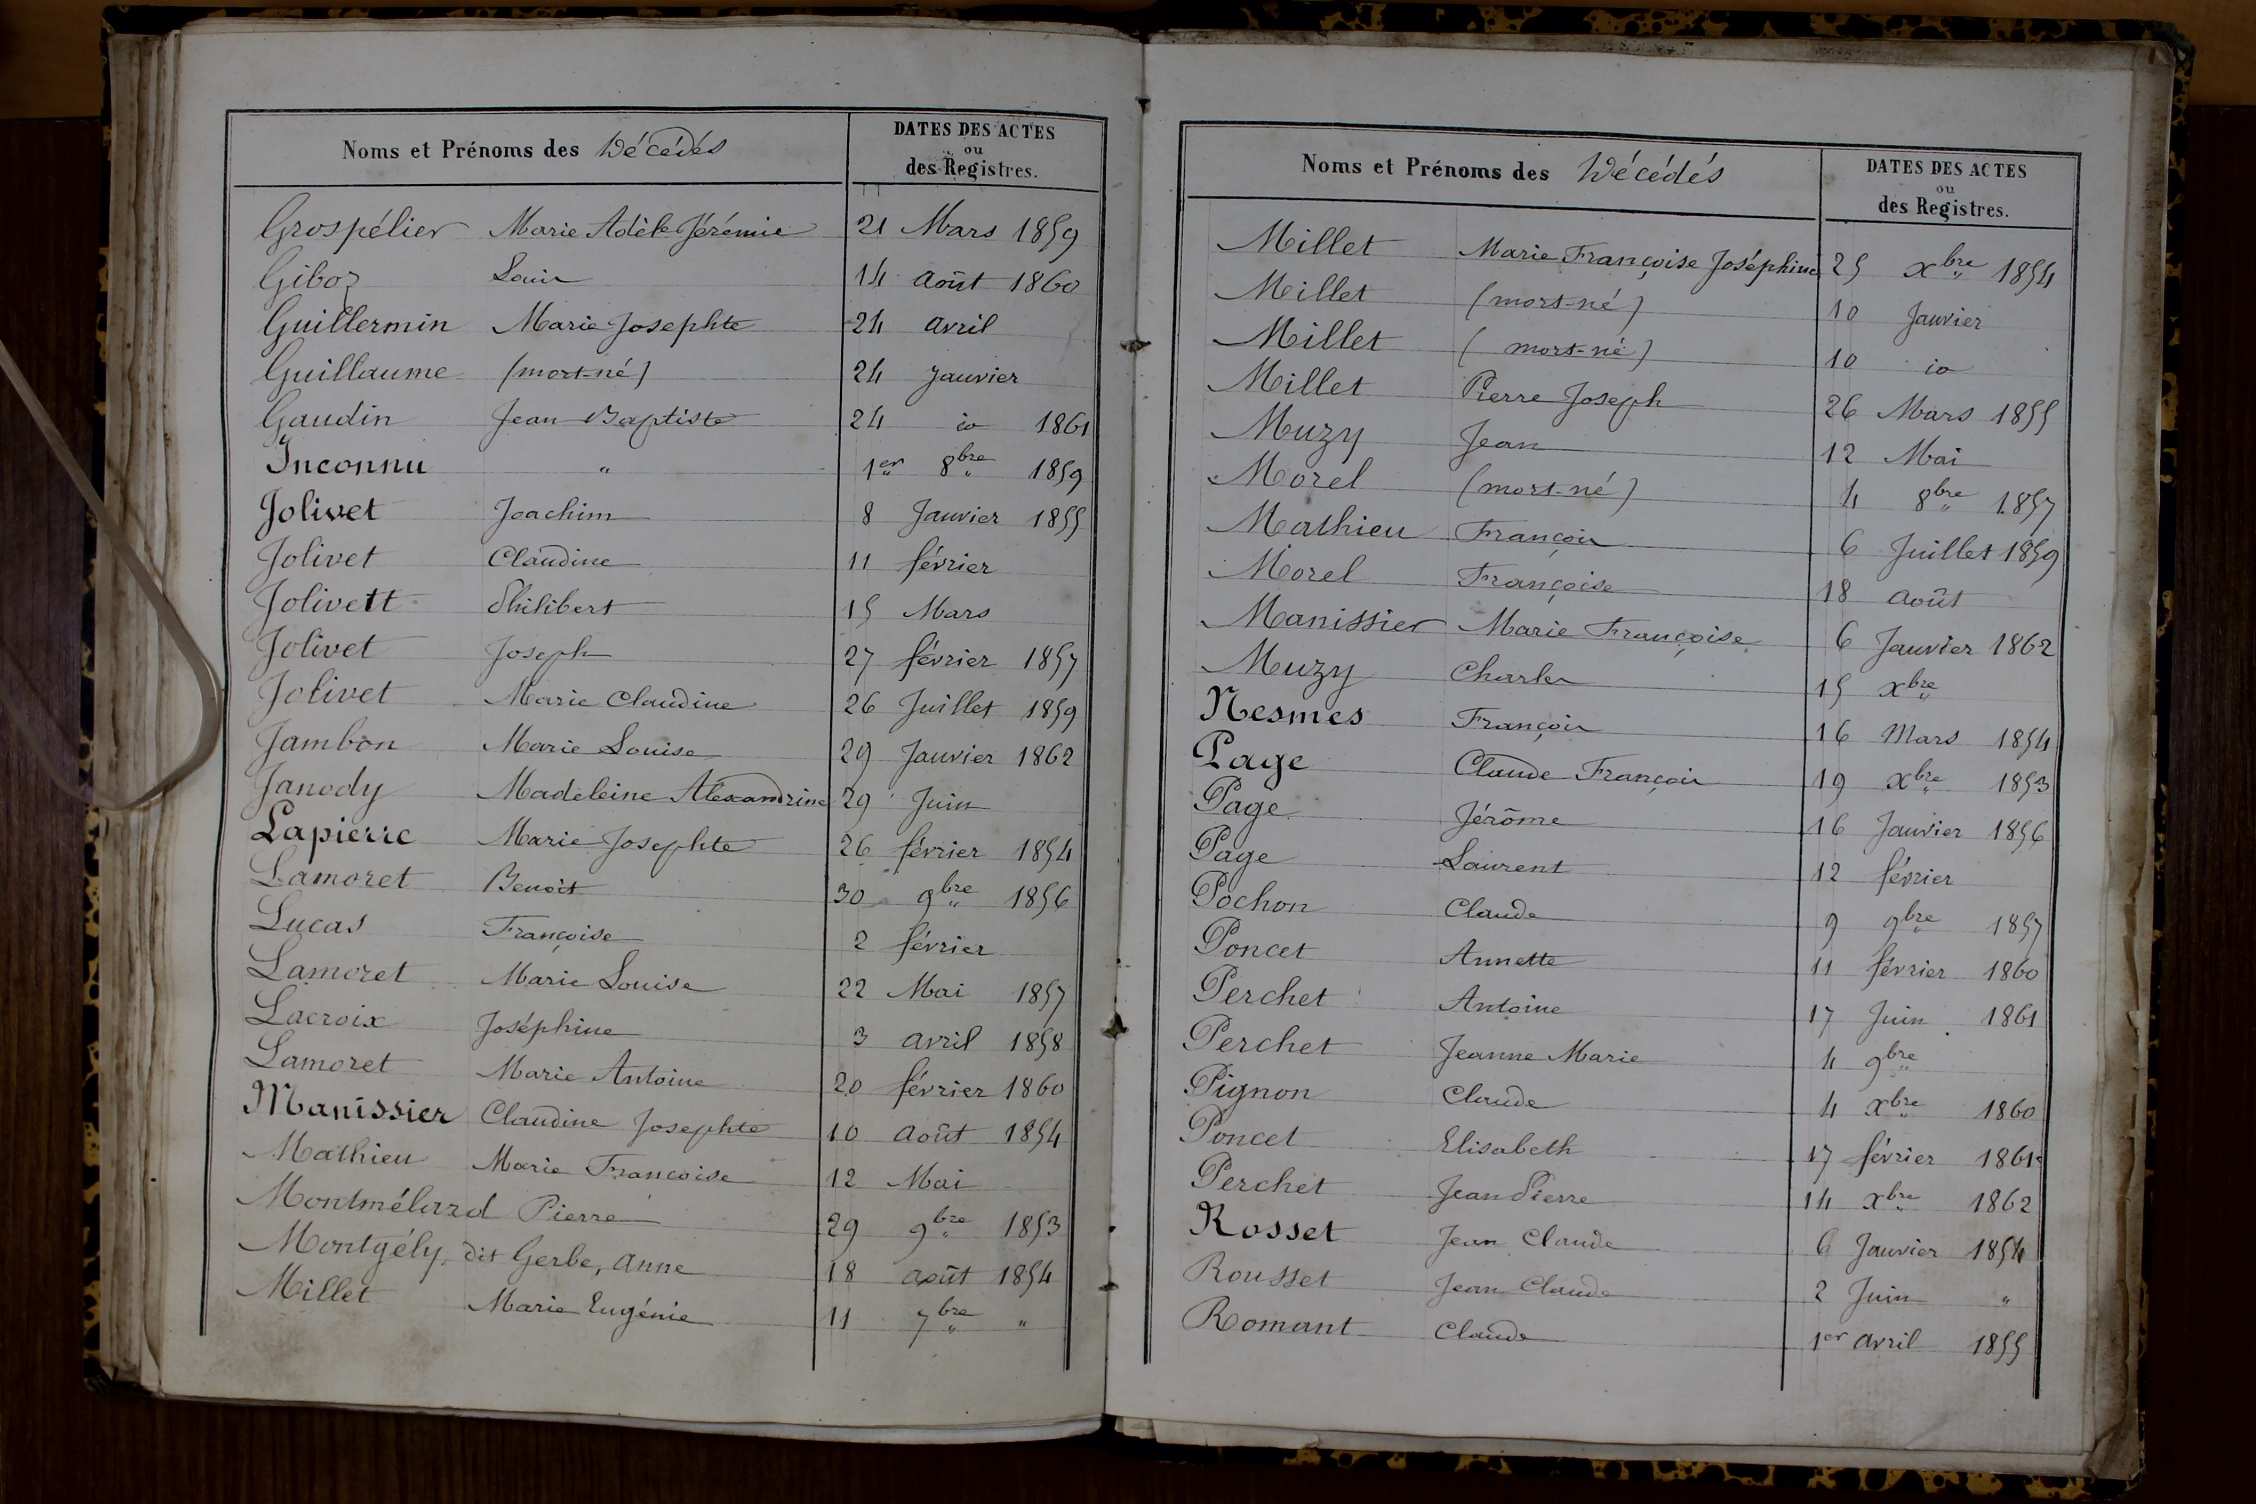 Noms et Prénoms des Décédés DATES DES ACTES
ou
des Registres.
Grospélier Marie Adèle Jérémie 21 Mars 1859
Giboz Louis 14 août 1860
Guillermin Marie Josephte 24 avril
Guillaume (mort-né) 24 Janvier
Gaudin Jean Baptiste 24 io 1861
Inconnu " 1er 8bre 1859
Jolivet Joachim 8 Janvier 1855
Jolivet Claudine 11 février
Jolivett Philibert 15 Mars
Jolivet Joseph 27 février 1857
Jolivet Marie Claudine 26 Juillet 1859
Jambon Marie Louise 29 Janvier 1862
Janody Madeleine Alexandrine 29 Juin
Lapierre Marie Josephte 26 février 1854
Lamoret Benoit 30 9bre 1856
Lucas Françoise 2 février
Lamoret Marie Louise 22 Mai 1857
Lacroix Joséphine 3 avril 1858
Lamoret Marie Antoine 20 février 1860
Manissier Claudine Josephte 10 août 1854
Mathieu Marie Francoise 12 Mai
Montmélard Pierre 29 9bre 1853
Montgély, dit Gerbe, Anne 18 août 1854
Millet Marie Eugénie 11 7bre "
Noms et Prénoms des Décédés DATES DES ACTES
ou
des Registres.
Millet Marie Françoise Joséphine 25 xbre 1854
Millet (mort-né) 10 Janvier
Millet (mort-né) 10 io
Millet Pierre Joseph 26 Mars 1855
Muzy Jean 12 Mai
Morel (mort-né) 4 8bre 1857
Mathieu François 6 Juillet 1859
Morel Françoise 18 août
Manissier Marie Françoise 6 Janvier 1862
Muzy Charles 15 xbre
Nesmes François 16 Mars 1854
Page Claude François 19 xbre 1853
Page Jérôme 16 Janvier 1856
Page Laurent 12 février
Pochon Claude 9 9bre 1857
Poncet Annette 11 février 1860
Perchet Antoine 17 Juin 1861
Perchet Jeanne Marie 4 9bre
Pignon Claude 4 xbre 1860
Poncet Elisabeth 17 février 1861
Perchet Jean Pierre 14 xbre 1862
Rosset Jean Claude 6 Janvier 1854
Rousset Jean Claude 2 Juin "
Romant Claude 1er avril 1855